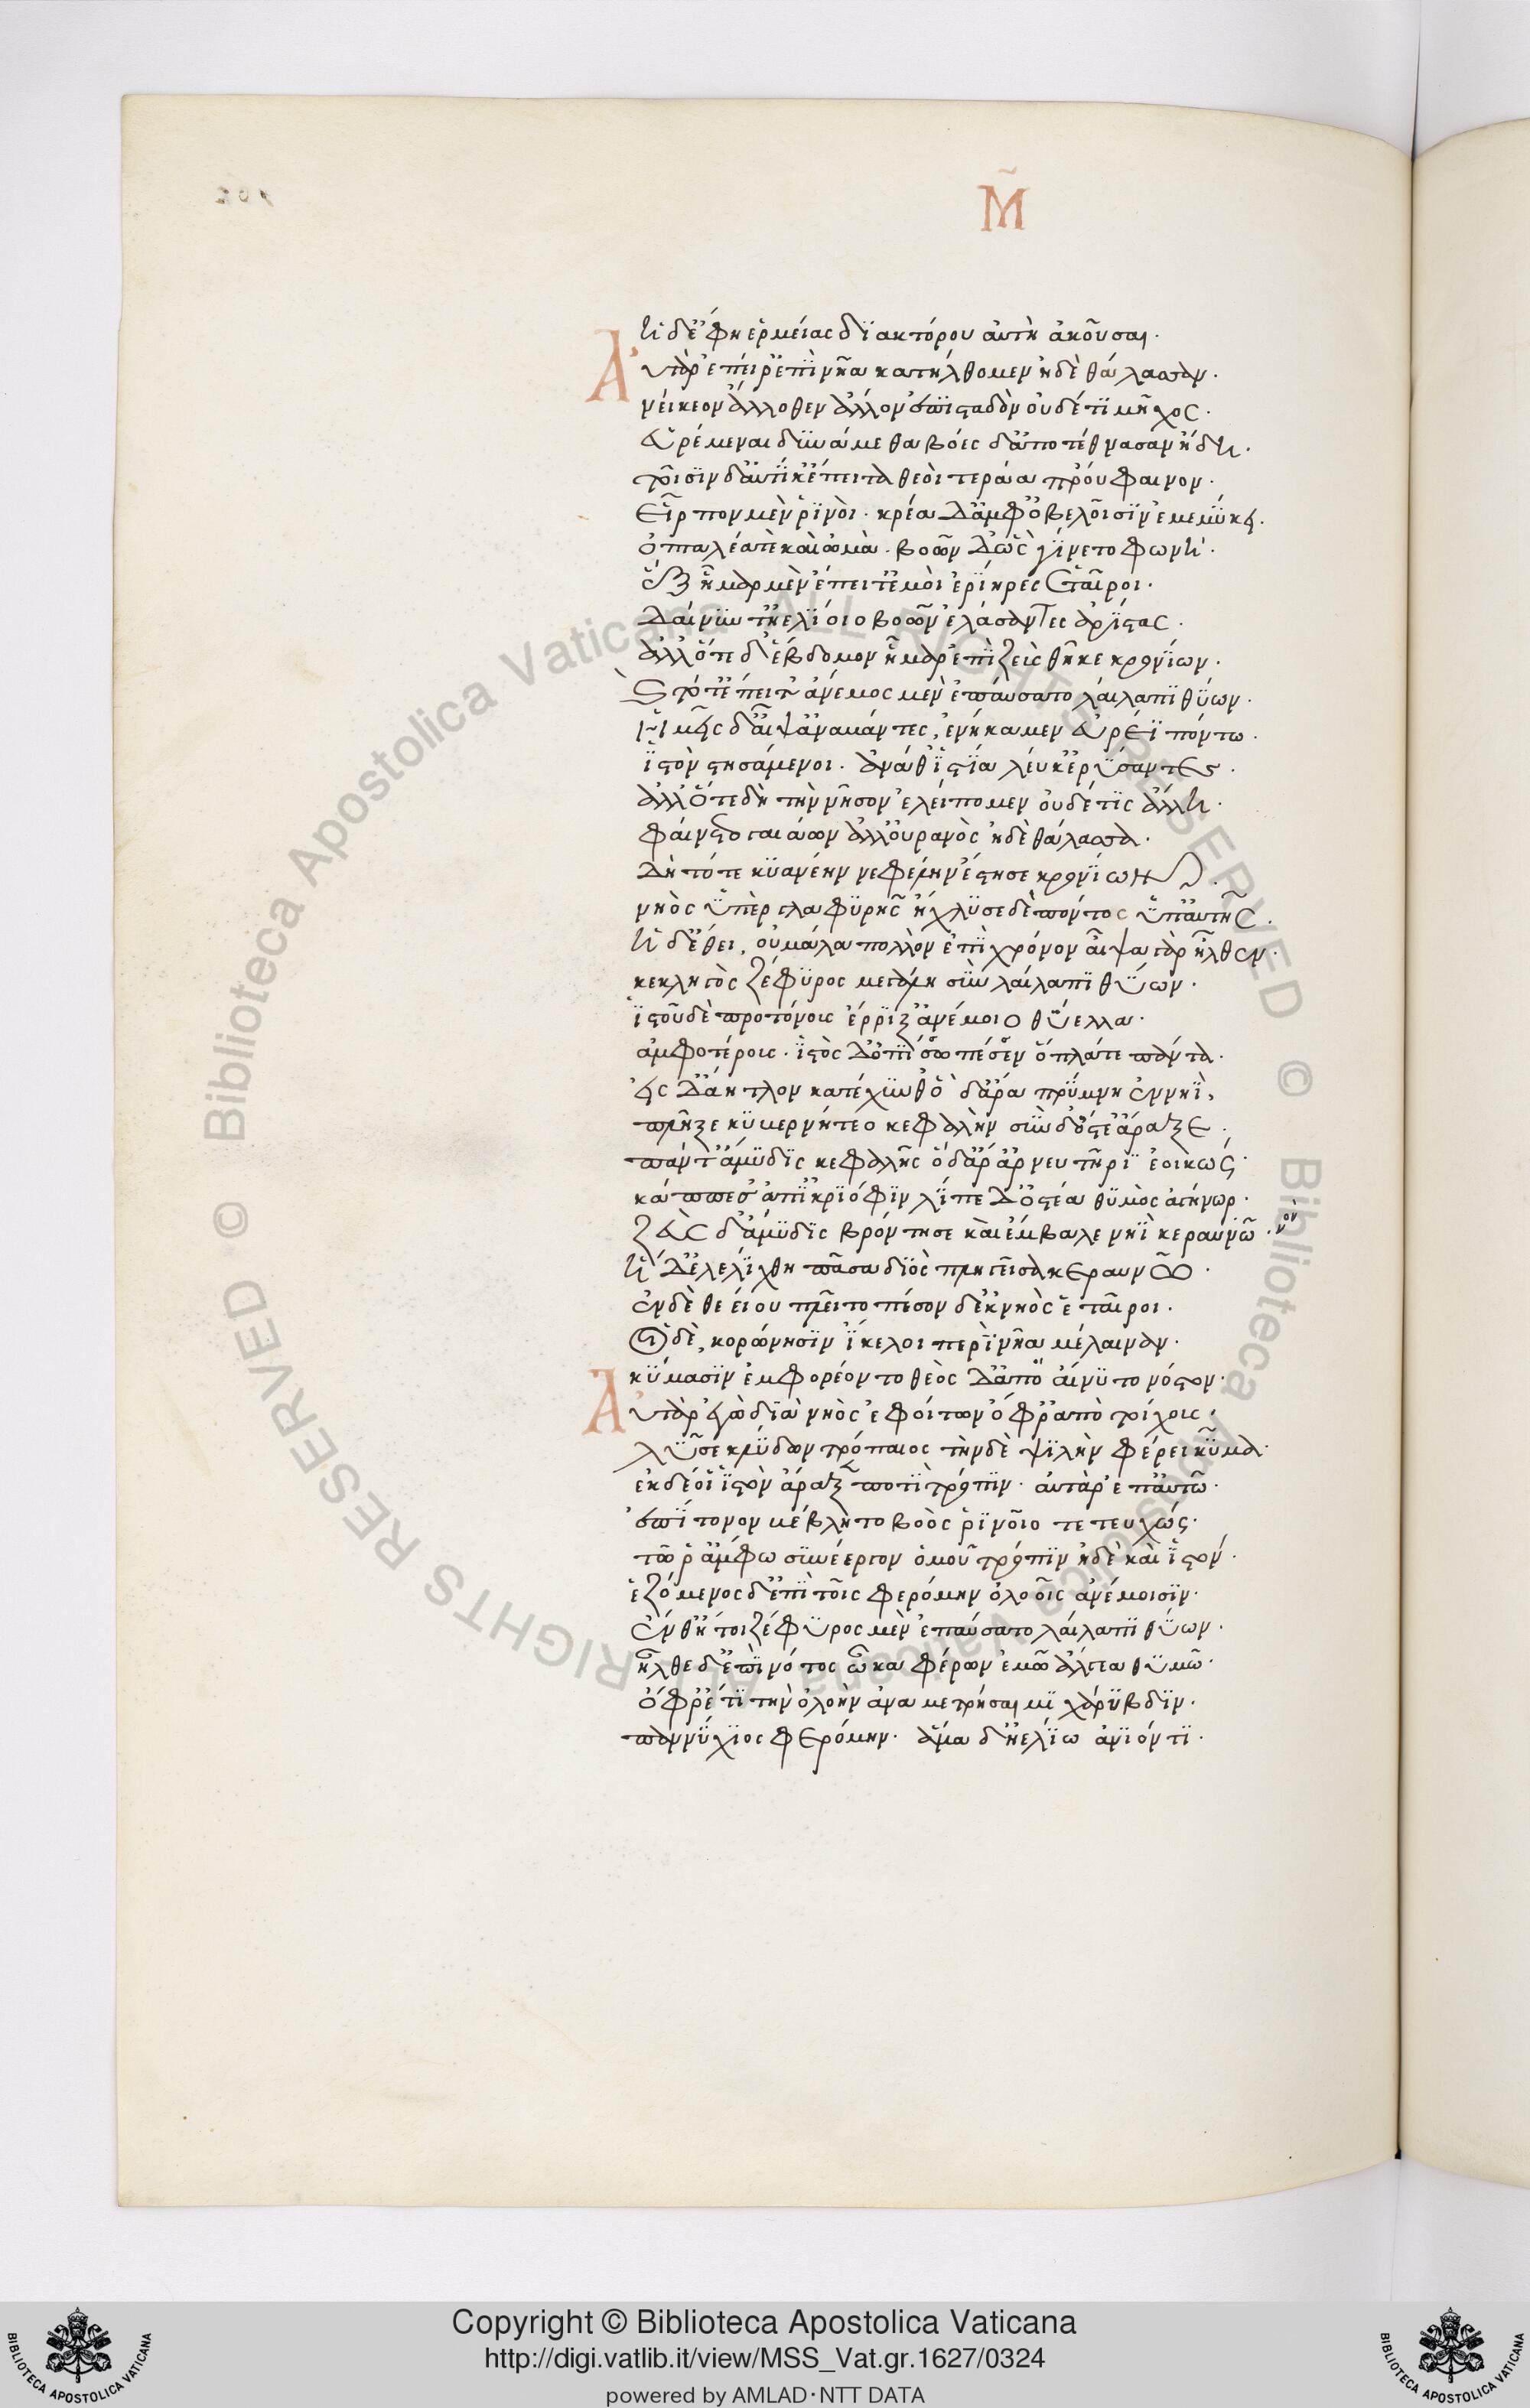 Μ̃
ἡ δ' ἔφη ἑρμείαο δϊακτόρου αὐτὴ ἀκοῦσαι·
Αὐτὰρ ἐπεί ῥ' ἐπῒ νῆα κατήλθομεν ἠδὲ θάλασσαν·
νείκεον ἄλλοθεν ἄλλον ἐπϊσταδὸν οὐδέ τϊ μῆχος·
εὑρέμεναι δϋνάμεθα βόες δ' ἀποτέθνασαν ἤδη·
τοῖσϊν δ' αὐτίκ' ἔπειτα θεοὶ τεράα προὔφαινον·
εἷρπον μὲν ῥϊνοὶ· κρέα δ' ἀμφ' ὀβελοῖσϊν ἐμεμύκει·
ὀπταλέα τὲ καὶ ὠμὰ· βοῶν δ' ὣς γίνετο φωνή·
ἑξῆμαρ μὲν ἔπειτ' ἐμοὶ ἐρίηρες ἑταῖροι·
δαίνϋντ' ἠελίοιο βοῶν ἐλάσαντες ἀρίστας·
ἀλλ' ὅτε δ' ἕβδομον ἦμαρ ἐπῒ ζεὺς θῆκε κρονίων·
καὶ τότ' ἔπειτ' ἄνεμος μὲν ἐπαύσατο λαίλαπϊ θύων·
ἡμεῖς δ' αἶψ' ἀναβάντες, ἐνήκαμεν εὐρέϊ πόντω·
ἱστὸν στησάμενοι· ἀνά θ' ἱστία λεύκ' ἐρύσαντες·
ἀλλ' ὅτε δὴ τὴν νῆσον ἐλείπομεν οὐδέ τϊς ἄλλη·
φαίνετο γαιάων ἀλλ' οὐρανὸς ἠδὲ θάλασσα·
δὴ τότε κϋανέην νεφέλην ἔστησε κρονίων·
νηὸς ὕπερ γλαφϋρῆς ἤχλϋσε δὲ πόντος ὑπ' αὐτῆς·
ἡ δ' ἔθει, οὐ μάλα πολλὸν ἐπῒ χρόνον αἶψα γὰρ ἦλθεν·
κεκληγὸς ζέφϋρος μεγάλη σὺν λαίλαπϊ θύων·
ἱστοῦ δὲ προτόνους ἔρρϊξ' ἀνέμοιο θύελλα·
ἀμφοτέρους· ἱστὸς δ' ὀπίσω πέσεν ὅπλά τε πάντα·
εἰς δ' ἄντλον κατέχϋνθ' ὁ δ' ἄρα πρύμνη ἐν νηῒ,
πλῆξε κϋβερνήτεο κεφαλὴν σὺν δ' ὀστέ' ἄραξε·
πάντ' ἄμϋδϊς κεφαλῆς ὁ δ' ἄρ' ἀρνευτῆρϊ ἐοικώς·
κάππεσ' ἀπ' ἰκρϊόφϊν λίπε δ' ὀστέα θϋμὸς ἀγήνωρ·
ζεὺς δ' ἄμϋδϊς βρόντησε καὶ ἔμβαλε νηῒ κεραυνῶ· νὸν
ἡ δ' ἐλελίχθη πᾶσα δϊὸς πληγεῖσα κεραυνῶ·
ἐν δὲ θεείου πλεῖτο πέσον δ' ἐκ νηὸς ἑταῖροι·
οἱ δὲ, κορώνησϊν ἴκελοι περῒ νῆα μέλαιναν·
κύμασϊν ἐμφορέοντο θεὸς δ' ἀπὸ αἴνϋτο νόστον·
Αὐτὰρ ἐγὼ δϊὰ νηὸς ἐφοίτων ὄφρ' ἀπὸ τοίχους,
λῦσε κλύδων τρόπιος τὴν δὲ ψϊλὴν φέρει κῦμα·
ἐκ δέ οἱ ἱστὸν ἄραξε ποτῒ τρόπϊν· αὐτὰρ ἐπ' αὐτῶ·
ἐπίτονον βέβλητο βοὸς ῥϊνοῖο τετευχώς·
τῶ ῥ' ἄμφω σϋνέεργον ὁμοῦ τρόπϊν ἠδὲ καὶ ἱστόν·
ἑζόμενος δ' ἐπῒ τοῖς φερόμην ὀλοοῖς ἀνέμοισϊν·
ἔνθ' ἤτοι ζέφϋρος μὲν ἐπαύσατο λαίλαπϊ θύων·
ἦλθε δ' ἐπῒ νότος ὦκα φέρων ἐμῶ ἄλγεα θϋμῶ·
ὄφρ' ἔτϊ τὴν ὀλοὴν ἀναμετρήσαιμϊ χάρϋβδϊν·
παννύχϊος φερόμην· ἅμα δ' ἠελίω ἀνϊόντϊ·
Copyright © Biblioteca Apostolica Vaticana
http://digi.vatlib.it/view/MSS_Vat.gr.1627/0324
powered by AMLAD·NTT DATA
BIBLIOTECA APOSTOLICA VATICANA
BIBLIOTECA APOSTOLICA VATICANA
© Biblioteca Apostolica Vaticana ALL RIGHTS RESERVED © Biblioteca Apostolica Vaticana ALL RIGHTS RESERVED